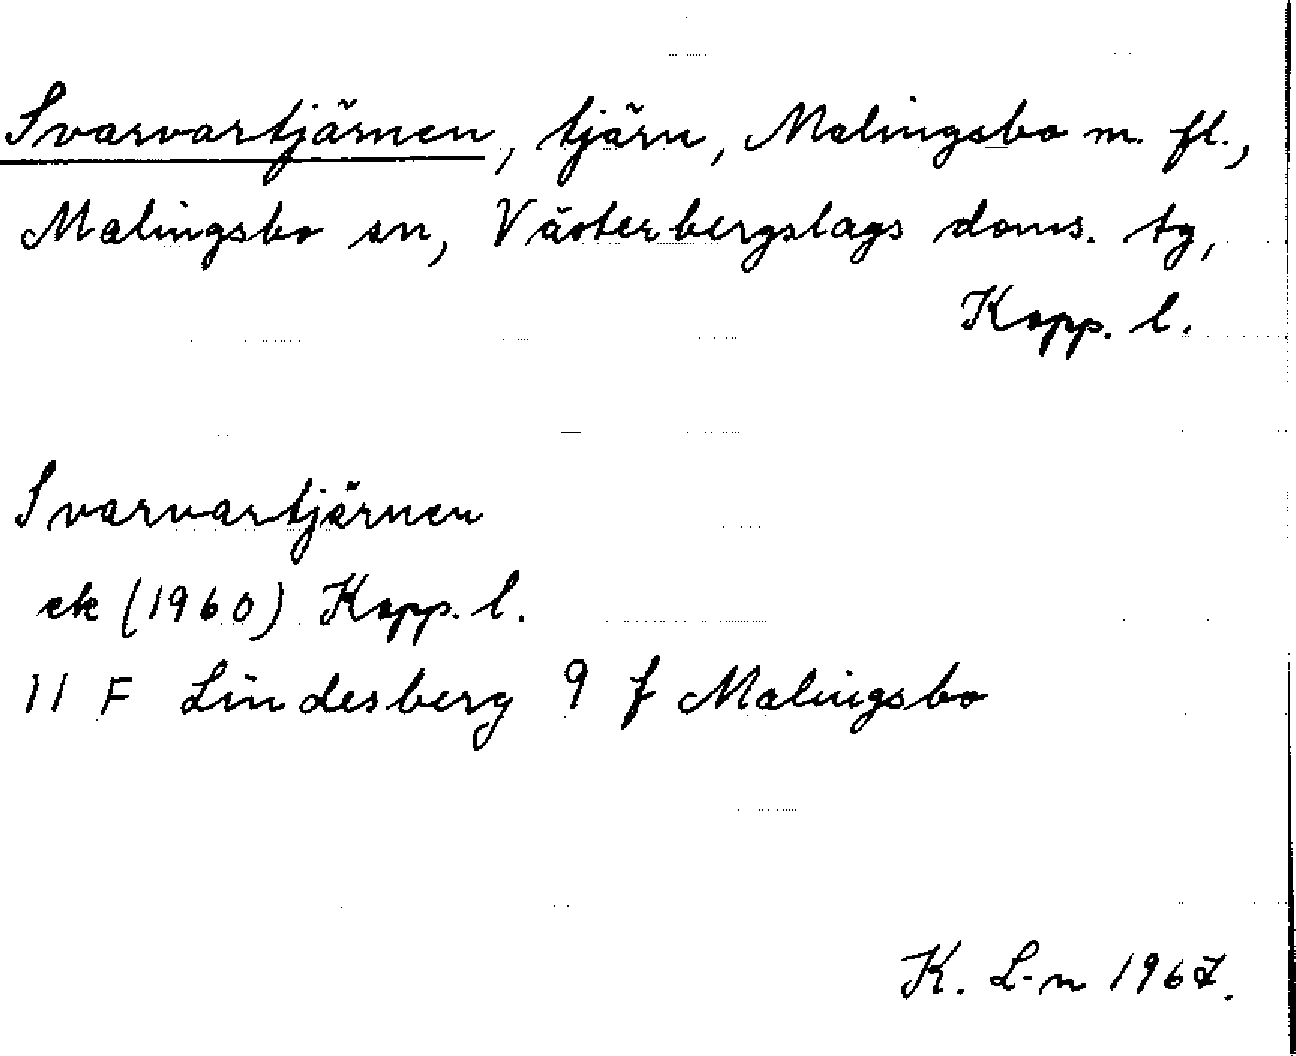 Svarvartjärnen, tjärn, Malingsbo m. fl.,
Malingsbo sn, Västerbergslags doms. tg,
Kopp. l.
Svarvartjärnen
ek (1960) Kopp. l.
11 F Lindesberg 9 f Malingsbo
K. L-n 1967.